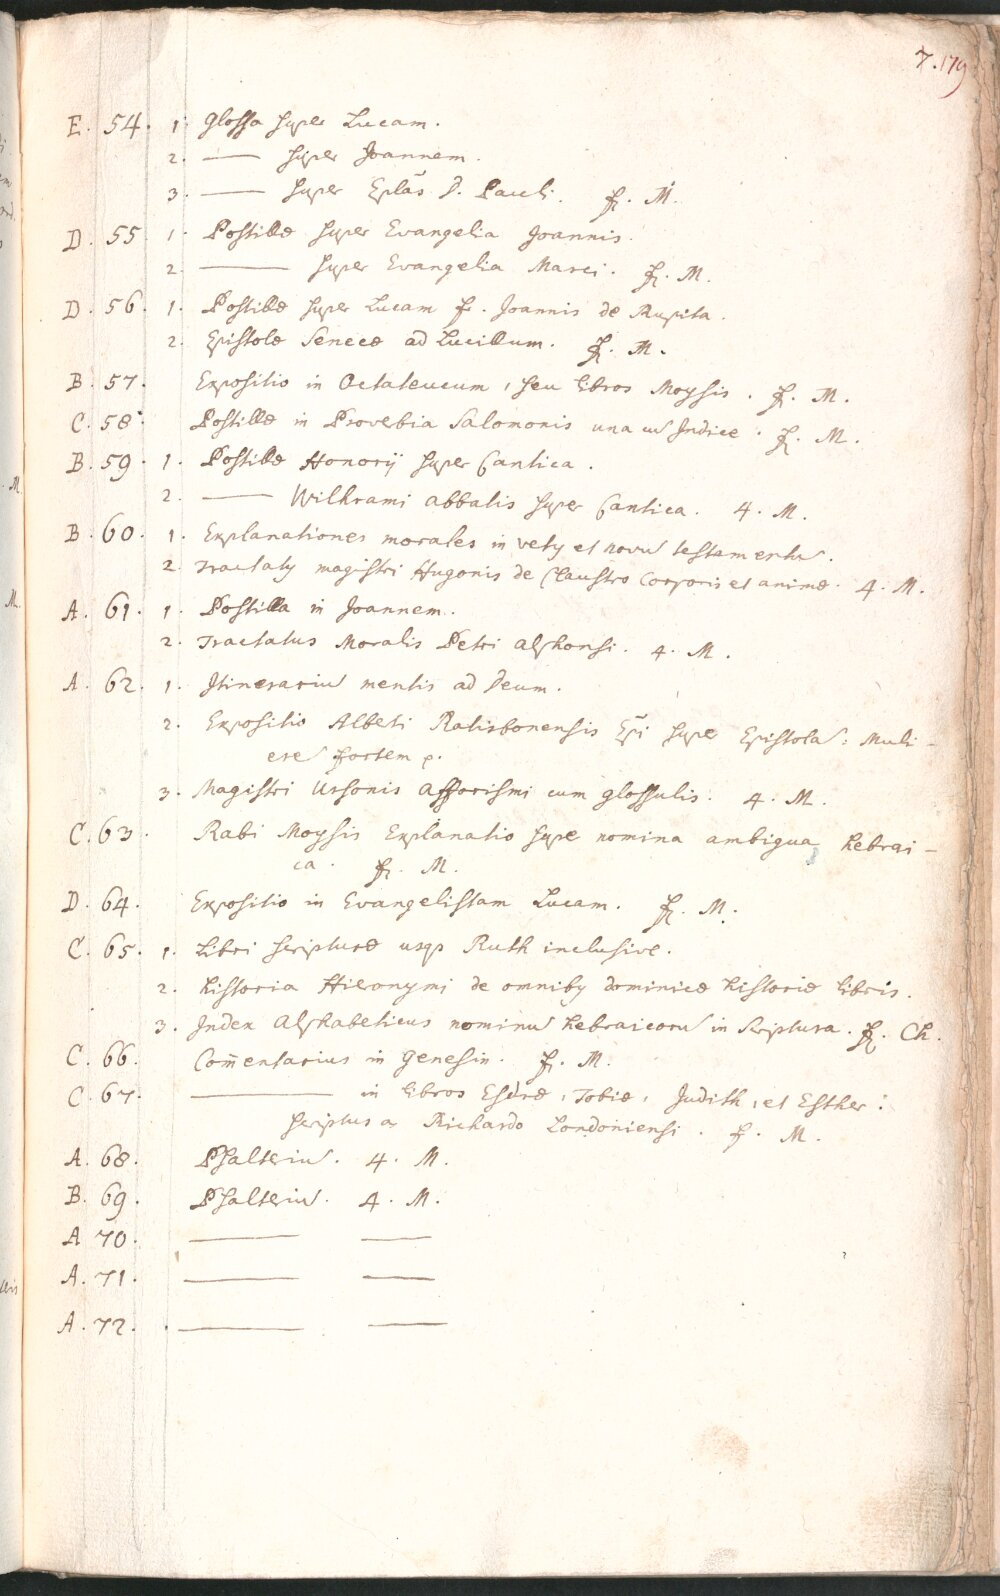 7. 179
E. 54. 1. Glossa super Lucam.
2. —— super Joannem.
3. —— super Eplãs D. Pauli. f. M.
D. 55 1. Postillæ super Evangelia Joannis.
2. —— super Evangelia Marci. f. M.
D. 56. 1. Postillæ super Lucam fr. Joannis de Rupella.
2. Epistolæ Senecæ ad Lucillum. f. M.
B. 57. Expositio in Octateucum, seu libros Moysis. f. M.
C. 58. Postillæ in Provebia Salomonis una cũ Indice. f. M.
B. 59. 1. Postillæ Honorij super Cantica.
2. —— Wilhrami abbatis super Cantica. 4. M.
B. 60. 1. Explanationes morales in vetꝰ et novũ testamentũ.
2. Tractatꝰ magistri Hugonis de Claustro Corporis et animæ. 4. M.
A. 61. 1. Postilla in Joannem.
2. Tractatus Moralis Petri alphonsi. 4. M.
A. 62. 1. Itinerariũ mentis ad Deum.
2. Expositio Alberti Ratisbonensis Epĩ supe Epistolã: Muli-
erẽ fortem p.
3. Magistri Ursonis afforismi cum glossulis. 4. M.
C. 63. Rabi Moysis Explanatio supe nomina ambigua hebrai-
ca. f. M.
D. 64. Expositio in Evangelistam Lucam. f. M.
C. 65. 1. Libri scripturæ usqꝫ Ruth inclusive.
2. historia Hieronymi de omnibꝰ dominicæ historiæ libris.
3. Index alphabeticus nominũ hebraicorũ in Scriptura. f. Ch.
C. 66. Com̃entarius in Genesin. f. M.
C. 67. —— in libros Esdræ, Tobiæ, Judith, et Esther:
scriptus a Richardo Londoniensi. f. M.
A. 68. Psalteriũ. 4. M.
B. 69. Psalteriũ. 4. M.
A 70. —— ——
A. 71. —— ——
A. 72. —— ——